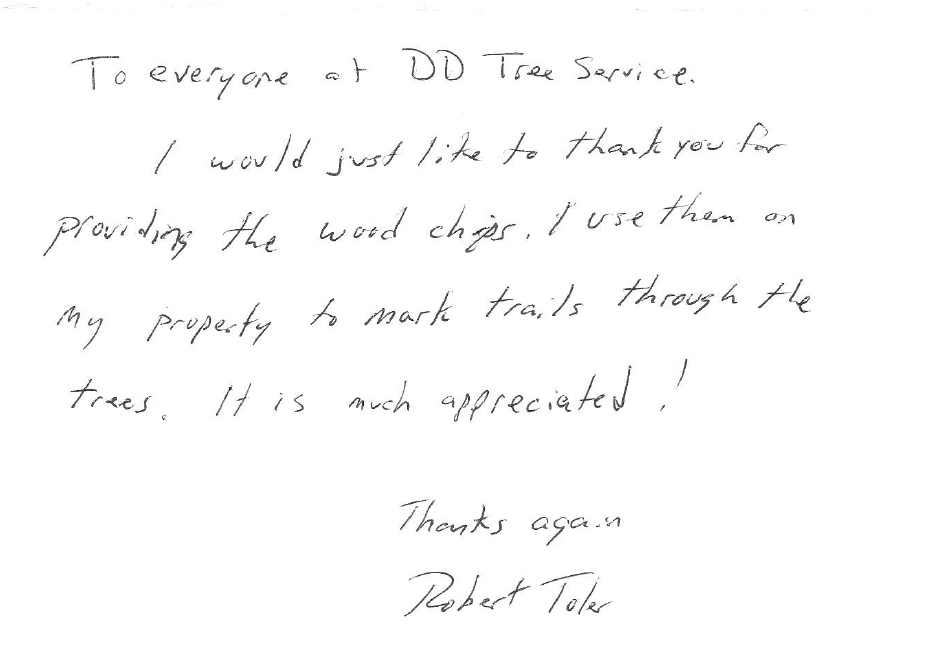 To everyone at DD Tree Service.
I would just like to thank you for
providing the wood chips. I use them on
my property to mark trails through the
trees. It is much appreciated!
Thanks again
Robert Toler